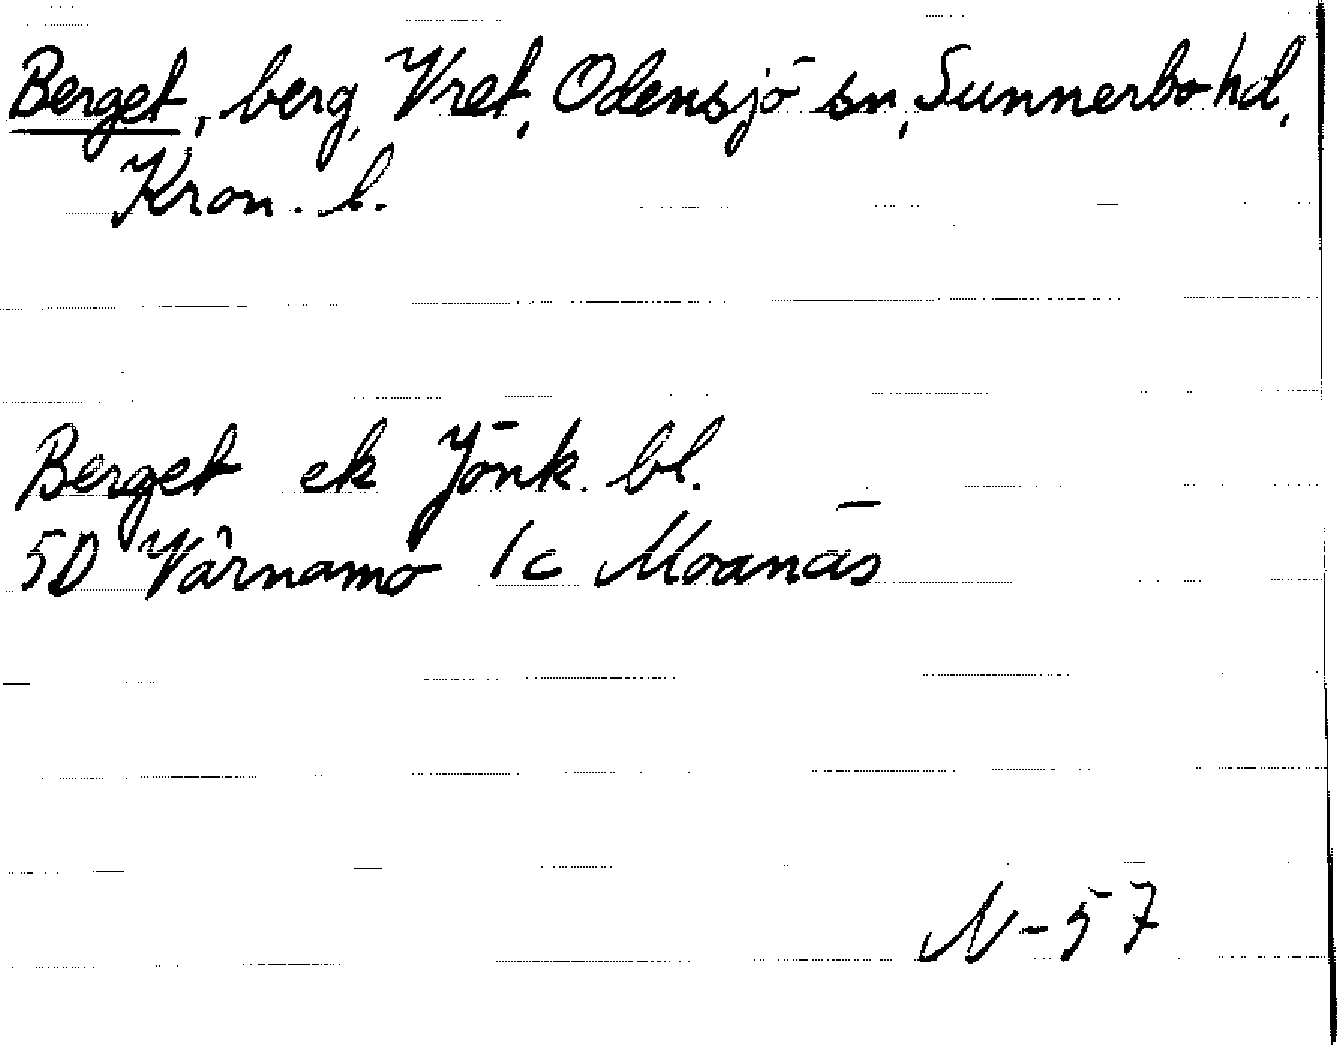 Berget, berg, Vret, Odensjö sn, Sunnerbo hd,
Kron. l.
Berget ek Jönk. bl.
5D Värnamo 1c Moanäs
N-57